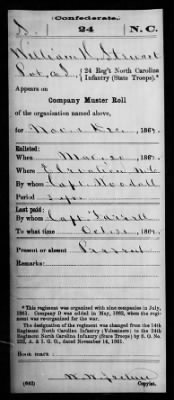 (Confederate.)
S 24 N. C.
William R. Stewart
Pvt, Co. D, 24 Reg't North Carolina Infantry (State Troops).*
Appears on
Company Muster Roll
of the organization named above,
for Nov. & Dec., 186
Enlisted:
When Mar. 20, 186
Where N.C.
By whom Capt. Woodall
Period 3 yrs.
Last paid:
By whom Capt.
To what time Oct. 31, 186
Present or absent Present
Remarks:
*This regiment was organized with nine companies in July,
1861. Company D was added in May, 1862, when the regiment
was re-organized for the war.
The designation of the regiment was changed from the 14th
Regiment North Carolina Infantry (Volunteers) to the 24th
Regiment North Carolina Infantry (State Troops) by S. O. No.
222, A. & I. G. O., dated November 14, 1861.
Book mark:
(642) Copyist.